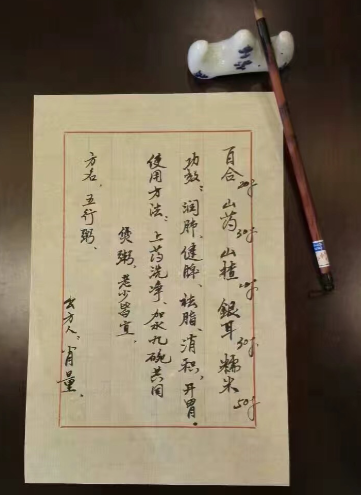 百合20g 山药30g 山楂10g 銀耳30g 糯米50g
功效：润肺、健脾、祛脂、消积、开胃。
使用方法：上药洗净、加水九碗共同
煲粥、老少皆宜
方名：五行粥、
出方人、肖量、